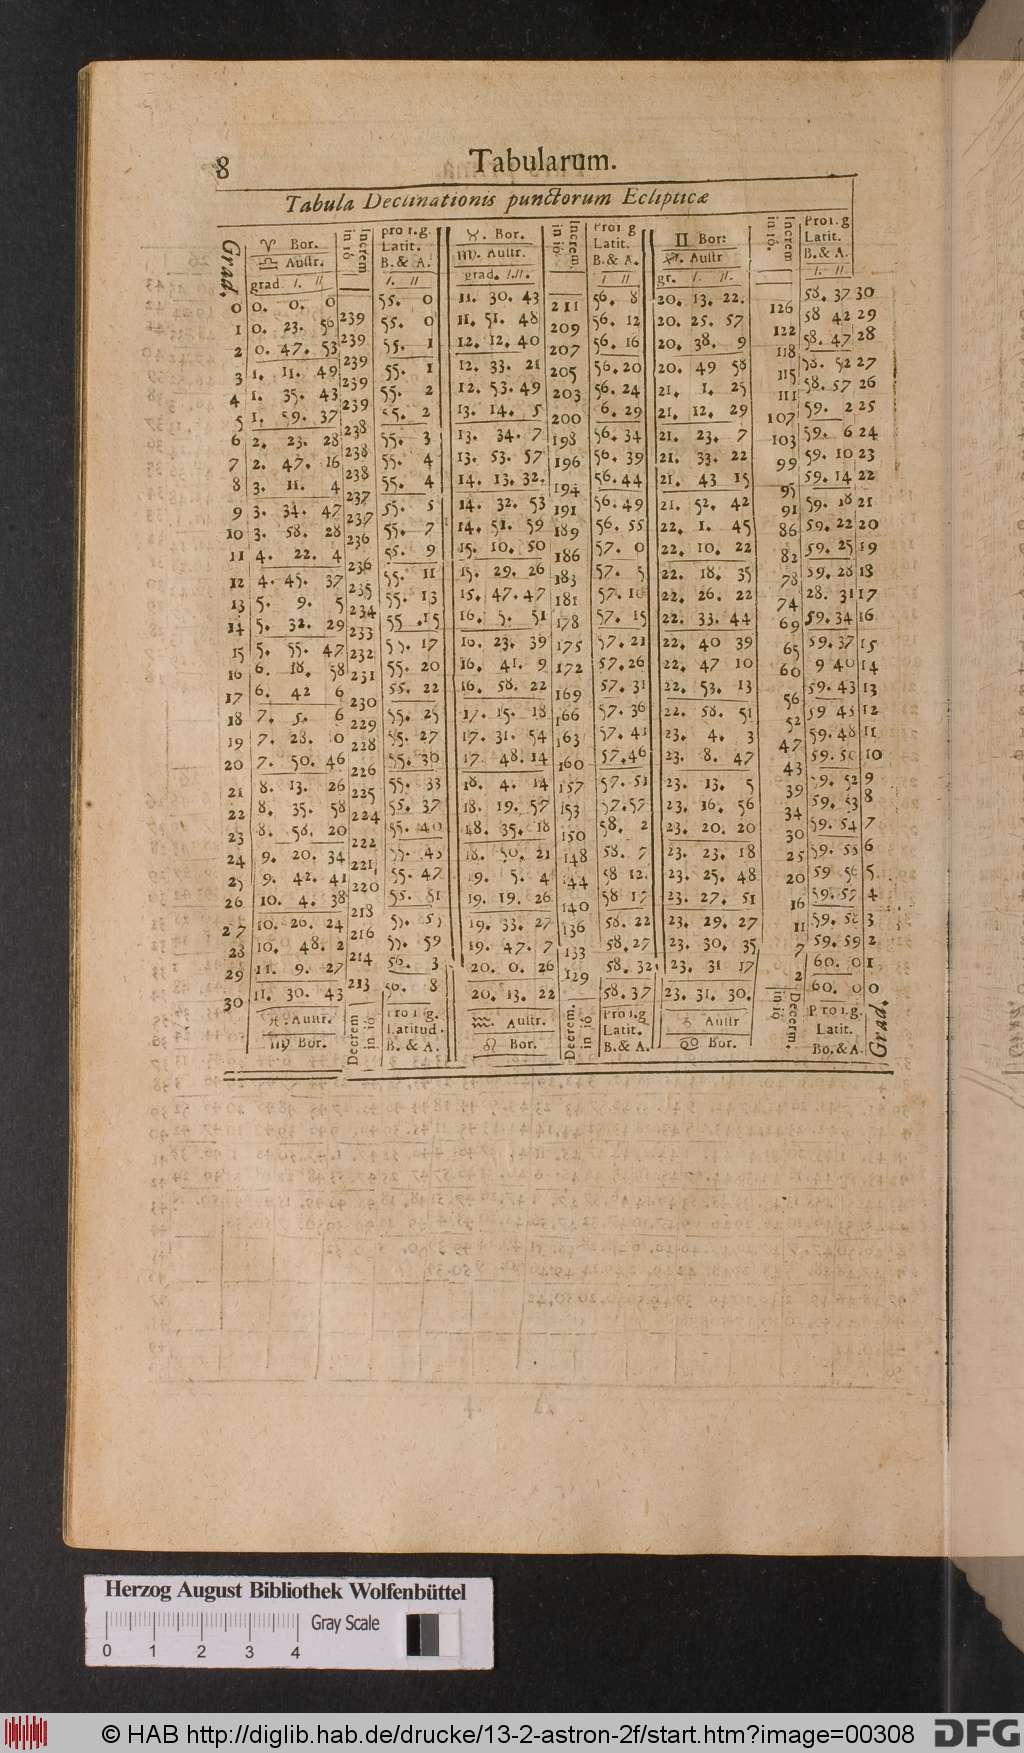 8 Tabularum.
Tabula Declinationis punctorum Eclipticæ
Grad. ♈ Bor. Increm in 10 pro 1. g. ♉. Bor. Increm. in 10 Pro 1 g ♊ Bor: Increm in 10. Pro 1. g
♎ Austr. Latit. ♏. Austr. Latit. ♐. Austr Latit.
grad. I. II B. & A. grad. I. II. B. & A. gr. I. II. B. & A.
I. II I II I. II.
0 0. 0. 0 55. 0 11. 30. 43 211 56. 8 20. 13. 22. 126 58. 37 30
1 0. 23. 56 239 55. 0 11. 51. 48 209 56. 12 20. 25. 57 122 58 42 29
2 0. 47. 53 239 55. 1 12. 12. 40 207 56. 16 20. 38. 9 118 58. 47 28
3 1. 11. 49 239 55. 1 12. 33. 21 205 56. 20 20. 49 58 115 58. 52 27
4 1. 35. 43 239 55. 2 12. 53. 49 203 56. 24 21. 1. 25 111 58. 57 26
5 1. 59. 37 239 55. 2 13. 14. 5 200 6. 29 21. 12. 29 107 59. 2 25
6 2. 23. 28 238 55. 3 13. 34. 7 198 56. 34 21. 23. 7 103 59. 6 24
7 2. 47. 16 238 55. 4 13. 53. 57 196 56. 39 21. 33. 22 99 59. 10 23
8 3. 11. 4 238 55. 4 14. 13. 32. 194 56. 44 21. 43 15 95 59. 14 22
9 3. 34. 47 237 55. 5 14. 32. 53 191 56. 49 21. 52. 42 91 59. 18 21
10 3. 58. 28 237 55. 7 14. 51. 59 189 56. 55 22. 1. 45 86 59. 22 20
11 4. 22. 4 236 55. 9 15. 10. 50 186 57. 0 22. 10. 22 82 59. 25 19
12 4. 45. 37 236 55. 11 15. 29. 26 183 57. 5 22. 18. 35 78 59. 28 18
13 5. 9. 5 235 55. 13 15. 47. 47 181 57. 10 22. 26. 22 74 28. 31 17
14 5. 32. 29 234 55. 15 16. 5. 51 178 57. 15 22. 33. 44 69 59. 34 16
15 5. 55. 47 233 55. 17 16. 23. 39 175 57. 21 22. 40 39 65 59. 37 15
16 6. 18. 58 232 55. 20 16. 41. 9 172 57. 26 22. 47 10 60 9 40 14
17 6. 42 6 231 55. 22 16. 58. 22 169 57. 31 22. 53. 13 56 59. 43 13
18 7. 5. 6 230 55. 25 17. 15. 18 166 57. 36 22. 58. 51 52 59 45 12
19 7. 28. 0 229 55. 27 17. 31. 54 163 57. 41 23. 4. 3 47 59. 48 11
20 7. 50. 46 228 55. 30 17. 48. 14 160 57. 46 23. 8. 47 43 59. 50 10
21 8. 13. 26 226 55. 33 18. 4. 14 157 57. 51 23. 13. 5 39 59. 52 9
22 8. 35. 58 225 55. 37 18. 19. 57 153 57. 57 23. 16. 56 34 59. 53 8
23 8. 58. 20 224 55. 40 48. 35. 18 150 58. 2 23. 20. 20 30 59. 54 7
24 9. 20. 34 222 55. 43 18. 50. 21 148 58. 7 23. 23. 18 25 59. 55 6
25 9. 42. 41 221 55. 47 19. 5. 4 144 58 12. 23. 25. 48 20 59 56 5
26 10. 4. 38 220 55. 51 19. 19. 26 140 58 17 23. 27. 51 16 59. 57 4
27 10. 26. 24 218 55. 55 19. 33. 27 136 58. 22 23. 29. 27 11 59. 58 3
28 10. 48. 2 216 55. 59 19. 47. 7 133 58. 27 23. 30. 35 7 59. 59 2
29 11. 9. 27 214 56. 3 20. 0. 26 129 58. 32 23. 31 17 2 60. 0 1
30 11. 30. 43 213 56. 8 20. 13. 22 58. 37 23. 31. 30. 60. 0 0
♓. Austr. Decrem in 10 Pro 1. g. ♒. Austr. Decrem. in 10 Pro 1. g ♑ Austr Decerm. in 10 Pro 1. g. Grad.
♍ Bor. Latitud. ♌ Bor. Latit. ♋ Bor. Latit.
B. & A. B. & A. Bo. & A.
Herzog August Bibliothek Wolfenbüttel
Gray Scale
0 1 2 3 4
© HAB http://diglib.hab.de/drucke/13-2-astron-2f/start.htm?image=00308 DFG